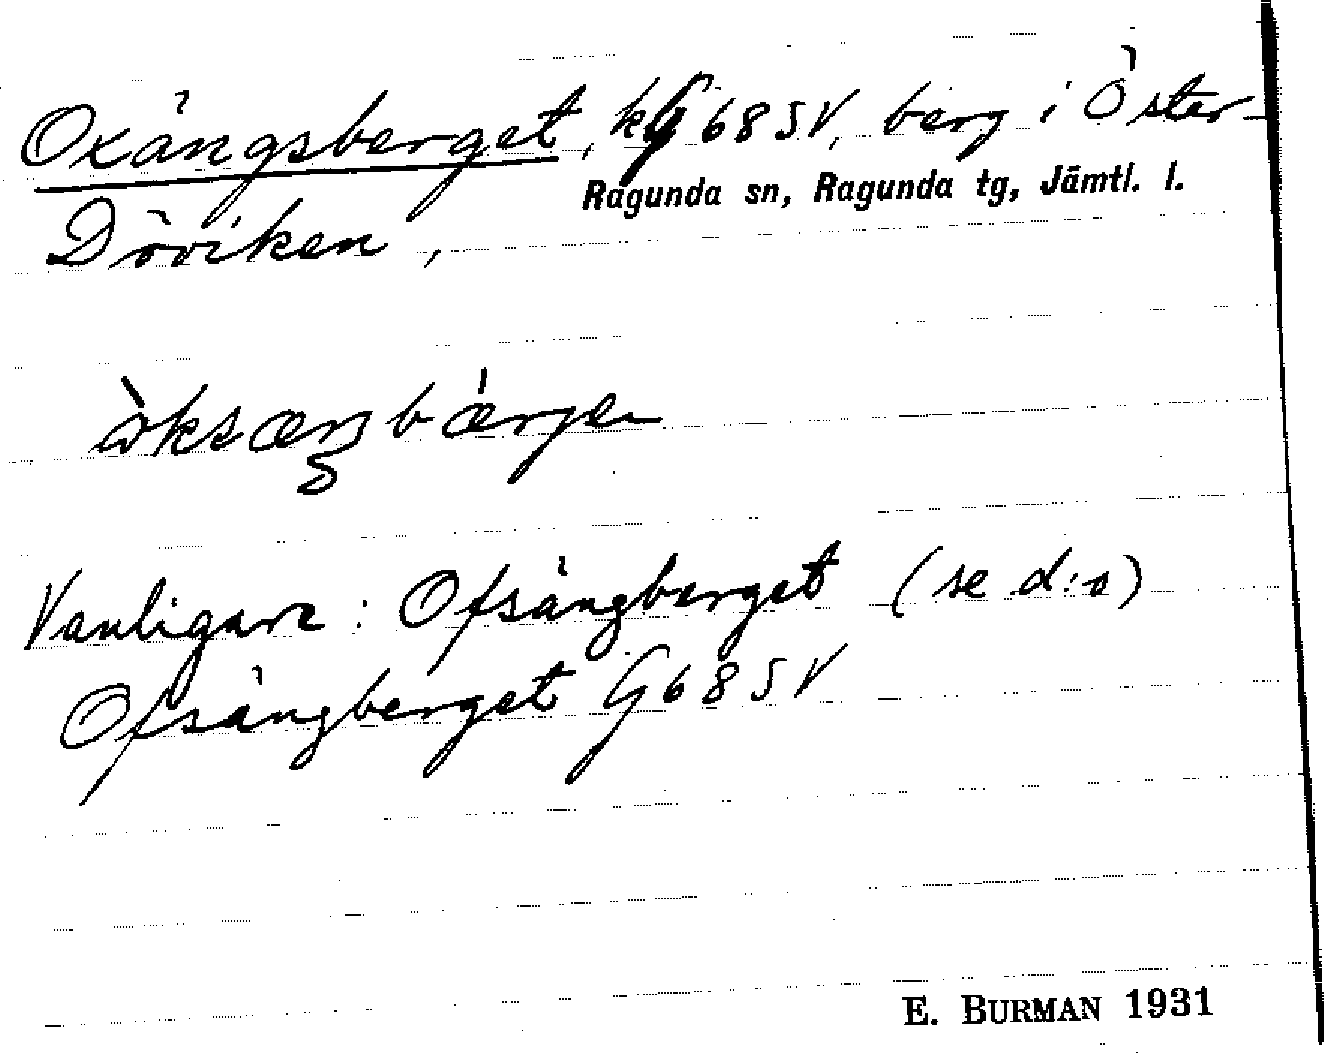 Oxängsberget, kG 68 SV, berg i Öster-
Ragunda sn, Ragunda tg, Jämtl. l.
Döviken,
Vanligare: Ofsängberget (se d:o)
Ofsängberget G 68 SV
E. BURMAN 1931